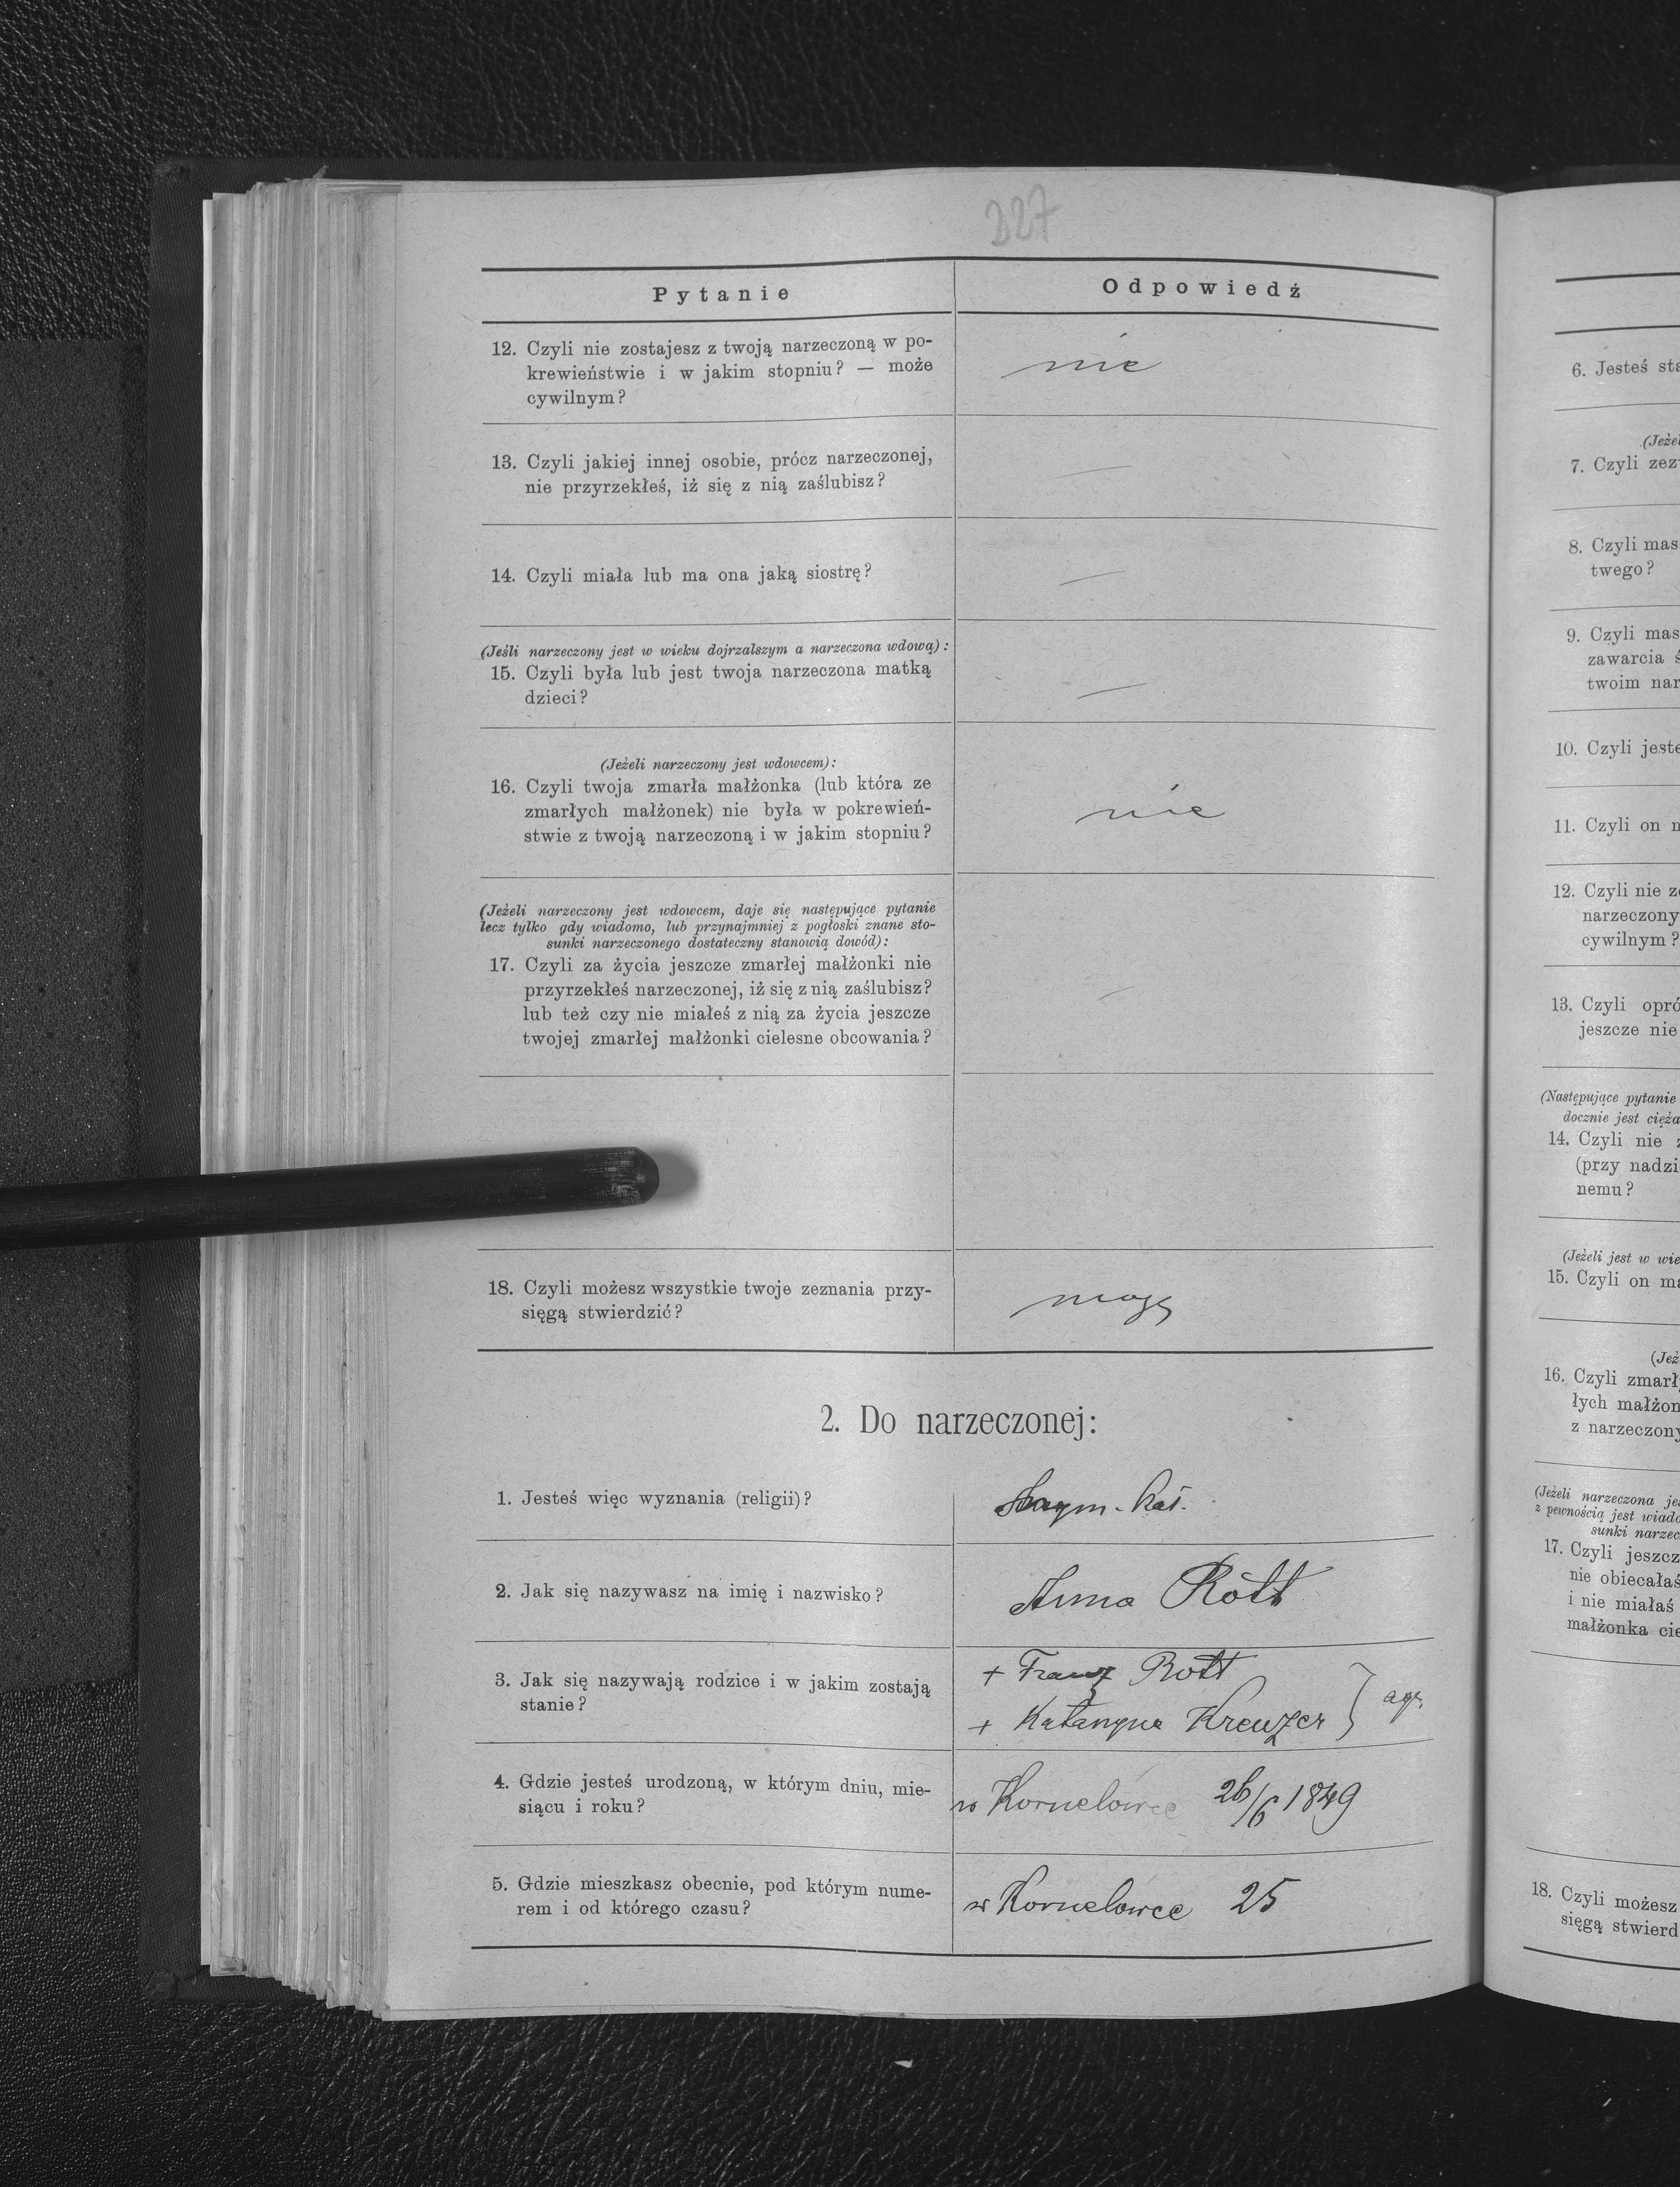 227
Pytanie Odpowiedź
12. Czyli nie zostajesz z twoją narzeczoną w po-
krewieństwie i w jakim stopniu? — może
cywilnym?
nie
13. Czyli jakiej innej osobie, prócz narzeczonej,
nie przyrzekłeś, iż się z nią zaślubisz?
—
14. Czyli miała lub ma ona jaką siostrę?
—
(Jeśli narzeczony jest w wieku dojrzalszym a narzeczona wdową):
15. Czyli była lub jest twoja narzeczona matką
dzieci?
—
(Jeżeli narzeczony jest wdowcem):
16. Czyli twoja zmarła małżonka (lub która ze
zmarłych małżonek) nie była w pokrewień-
stwie z twoją narzeczoną i w jakim stopniu?
nie
(Jeżeli narzeczony jest wdowcem, daje się następujące pytanie
lecz tylko gdy wiadomo, lub przynajmniej z pogłoski znane sto-
sunki narzeczonego dostateczny stanowią dowód):
17. Czyli za życia jeszcze zmarłej małżonki nie
przyrzekłeś narzeczonej, iż się z nią zaślubisz?
lub też czy nie miałeś z nią za życia jeszcze
twojej zmarłej małżonki cielesne obcowania?
—
18. Czyli możesz wszystkie twoje zeznania przy-
sięgą stwierdzić?
mogę
2. Do narzeczonej:
1. Jesteś więc wyznania (religii)?
rzym.-kat.
2. Jak się nazywasz na imię i nazwisko?
Anna Rott
3. Jak się nazywają rodzice i w jakim zostają
stanie?
+ Franz Rott
+ Katarzyna Kreuzer } agr.
4. Gdzie jesteś urodzoną, w którym dniu, mie-
siącu i roku?
w Kornelówce 26/6 1849
5. Gdzie mieszkasz obecnie, pod którym nume-
rem i od którego czasu?
w Kornelówce 25
6. Jesteś sta
(Jeżel
7. Czyli zez
8. Czyli mas
twego?
9. Czyli mas
zawarcia ś
twoim nar
10. Czyli jeste
11. Czyli on n
12. Czyli nie z
narzeczony
cywilnym?
13. Czyli opró
jeszcze nie
(Następujące pytanie
docznie jest cięża
14. Czyli nie z
(przy nadzi
nemu?
(Jeżeli jest w wie
15. Czyli on ma
(Jeż
16. Czyli zmarł
łych małżon
z narzeczony
(Jeżeli narzeczona je
z pewnością jest wiado
sunki narzec
17. Czyli jeszcz
nie obiecałaś
i nie miałaś
małżonka cie
18. Czyli możesz
sięgą stwierd